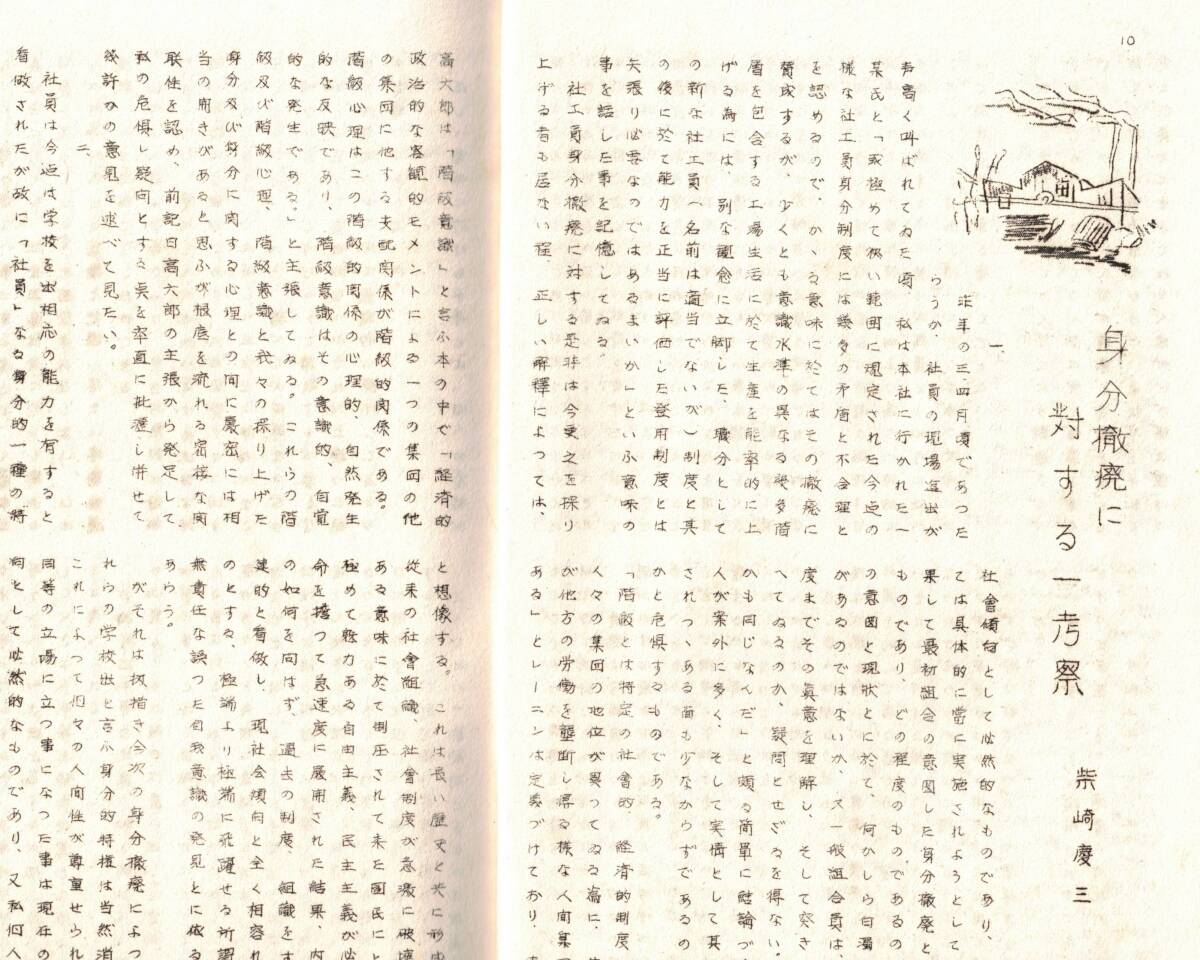 10
身分撤廃に
対する一考察
柴崎慶三
一、
昨年の三、四月頃であった
らうか、社員の現場進出が
声高く叫ばれてゐた頃 私は本社に行かれた一
某氏と「或極めて狭い範囲に規定された今迄の
様な社工員身分制度には幾多の矛盾と不合理と
を認めるので、かゝる意味に於てはその撤廃に
賛成するが、少くとも意識水準の異なる幾多階
層を包含する工場生活に於て生産を能率的に上
げる為には、別な観念に立脚した、職分として
の新な社工員(名前は適当でないが)制度と其
の後に於て能力を正当に評価した登用制度とは
矢張り必要なのではあるまいか」といふ意味の
事を話した事を記憶してゐる。
社工員身分撤廃に対する是非は今更之を採り
上げる者も居ない程、正しい解釋によっては、
社會傾向として必然的なものであり、
ては具体的に當に実施されようとして
果して最初組合の意図した身分撤廃と
ものであり、どの程度のものであるの
の意図と現状とに於て、何かしら白濁
があるのではないか、又一般組合員は、
度までその真意を理解し、そして突き
へてゐるのか、疑問とせざるを得ない。
かも同じなんだ」と頗る簡單に結論づ
人が案外に多く、そして実情として其
されつゝある面も少なからずであるの
かと危惧するものである。
「階級とは特定の社會的、経済的制度
人々の集団の地位が異つてゐる為に、
が他方の労働を壟断し得る様な人間集
ある」とレーニンは定義づけており、
高大郎は「階級意識」と言ふ本の中で「経済的
政治的な客観的モメントによる一つの集団の他
の集団に他する支配関係が階級的関係である。
階級心理はこの階級的関係の心理的、自然発生
的な反映であり、階級意識はその意識的、自覚
的な発生である。」と主張してゐる。これらの階
級及び階級心理、階級意識と我々の採り上げた
身分及び身分に関する心理との間に嚴密には相
当の開きがあると思ふが根底を流れる密接な関
联性を認め、前記日高六郎の主張から発足して
私の危惧し疑问とする点を率直に批瀝し併せて
幾許かの意見を述べて見たい。
二、
社員は今迄は学校を出相応の能力を有すると
看做されたが故に「社員」なる身分的一種の特
と想像する。これは長い歴史と共に形
従来の社會組織、社會制度が急激に破壊
ある意味に於て制圧されて来た国民にと
極めて魅力ある自由主義、民主主義が必
命を擔つて急速度に展開された結果、内
の如何を问はず、過去の制度、組織をす
建的と看做し、現社会傾向と全く相容れ
のとする、極端より極端に飛躍せる所謂
無責任な誤つた自我意識の発見とに依る
あらう。
がそれは扨措き今次の身分撤廃によつ
れらの学校出と言ふ身分的特権は当然消
これによつて個々の人间性が尊重せられ
同等の立場に立つ事になつた事は現在の
向として必然的なものであり、又私個人